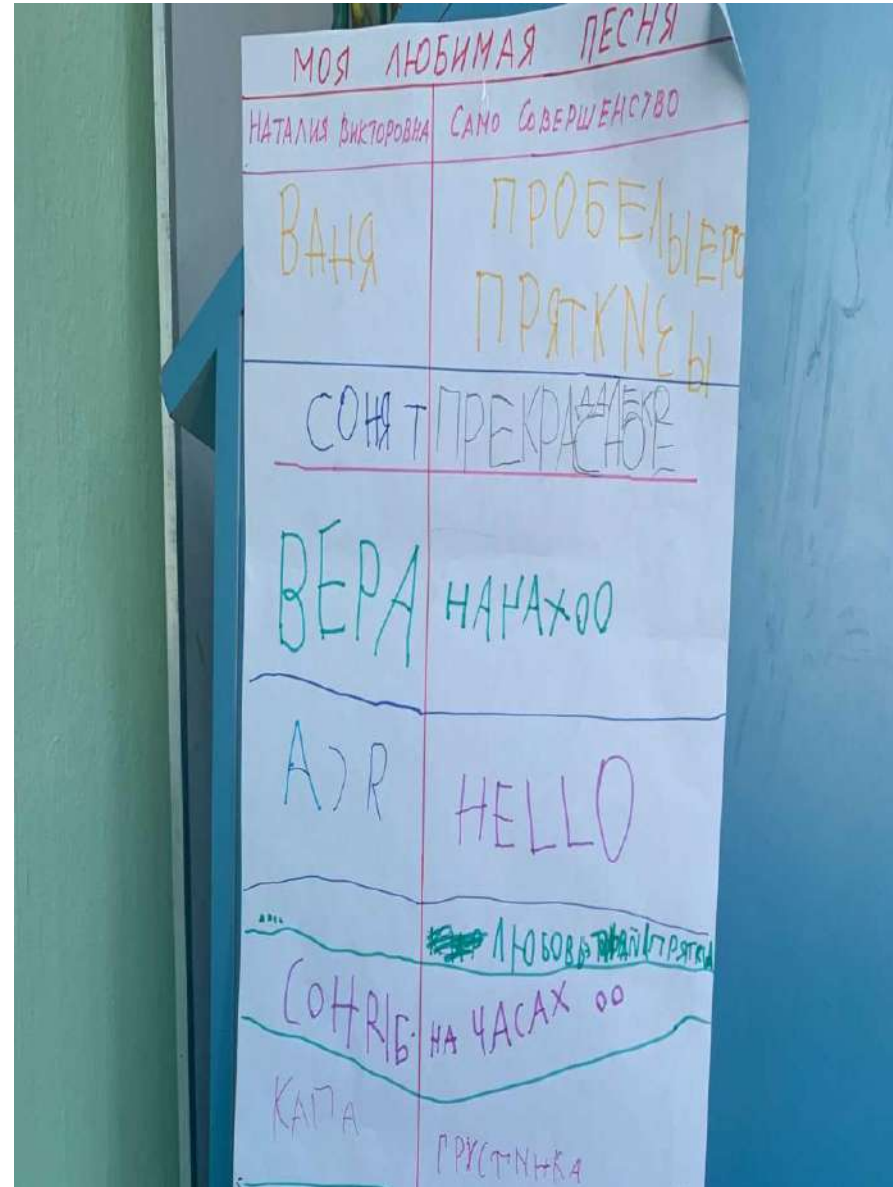 МОЯ ЛЮБИМАЯ ПЕСНЯ
НАТАЛИЯ ВИКТОРОВНА САМО СОВЕРШЕНСТВО
ВАНЯ ПРОБЕЛЫЕРО
ПРЯТКИ
СОНЯ Т ПРЕКРАСНОЕ
ДАЛЕКО
ВЕРА НАЧАХ00
HELLO
ЛЮБОВЬ ПРЯТКИ
СОНЯ Б. НА ЧАСАХ 00
КАПА ГРУСТИНКА